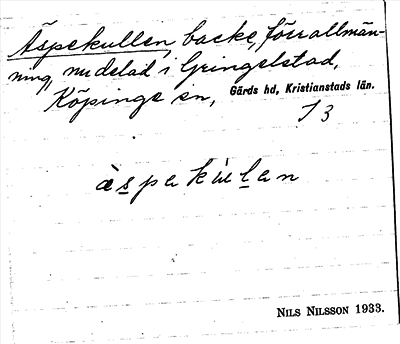 Äspekullen, backe, förr allmän-
ning, nu delad i Gringelstad,
Köpinge sn, Gärds hd, Kristianstads län.
T 3
àspakùlan
NILS NILSSON 1933.